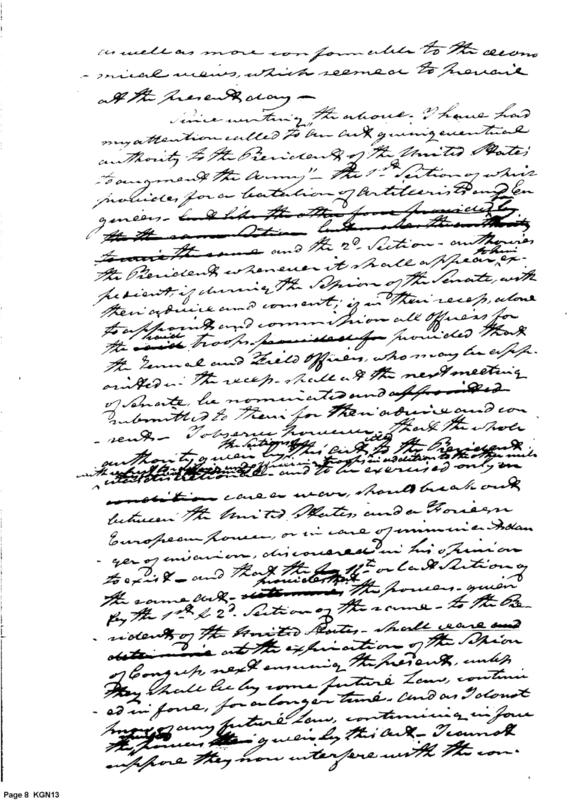 as well as more conformable to the econo
- mical views, which seemed to prevail
at the present day —
Since writing the above. I have had
my attention called to an act giving eventual
authority to the President of the United States
"to augment the Army" — the 1st Section of which
provides for a batalion of Artillerists and En
gineers- but like the other four provided by
the the same Section
to the same and the 2d. Section - authorises
the President whenever it shall appear to him ex-
pedient, if during the Session of the Senate, with
their advice and consent; if in their recess, alone
to appoint and commission all officers for
the said troops provided for provided that
the General and Field Officers, who may be app-
ointed in the recess - shall at the next meeting
of Senate, be nominated and appointed
submitted to them for their advice and con
- sent - I observe however, that the whole
authority given by the Sections of this act to the President
in addition to the other
and to be exercised only in
condition case a war, should break out
between the United States and a Foreign
European power, or in case of imminent dan
- ger of invasion, discovered in his opinion
to exist - and that the 11th or last Section of
the same act - determines provides that the powers - given
by the 1st & 2d. Section of the same - to the Pre
- sident of the United States - shall cease and
determine at the expiration of the Session
of Congress next ensuing the present, unless
they shall be by some future Law, continu
- ed in force, for a longer time - and as I do not
know of any future Law, continuing in force
the powers given by this act - I cannot
suppose they now interfere with the con-
Page 8 KGN13